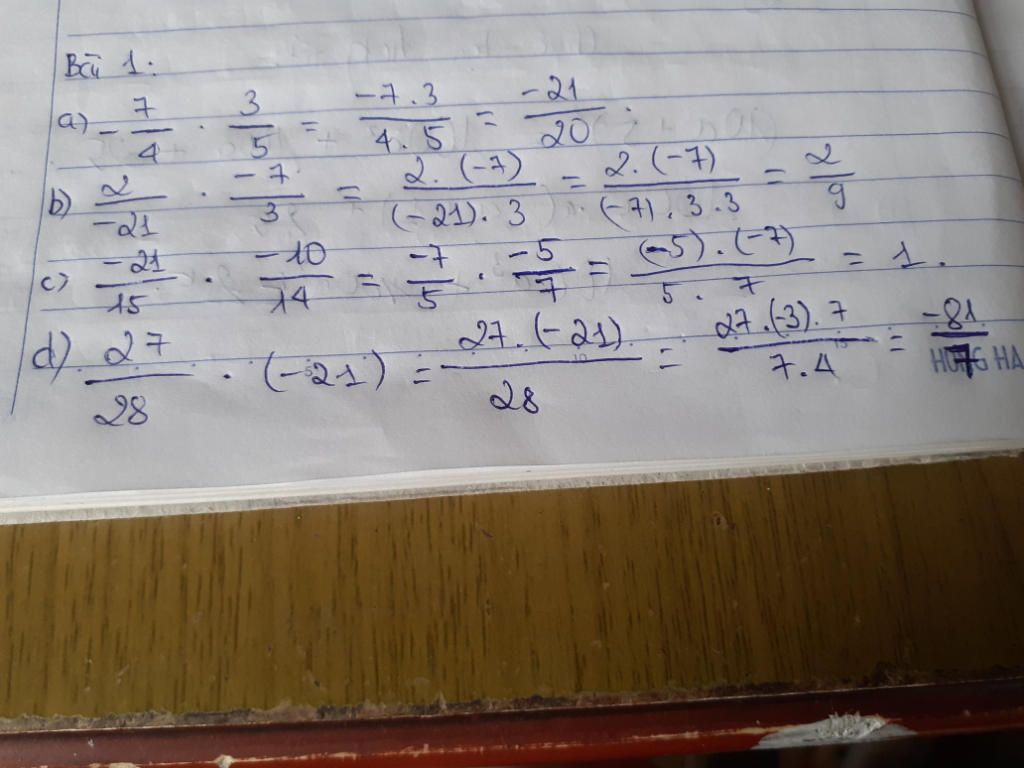 Bài 1:
a) -7/4 . 3/5 = -7.3/4.5 = -21/20.
b) 2/-21 . -7/3 = 2.(-7)/(-21).3 = 2.(-7)/(-7).3.3 = 2/9
c) -21/15 . -10/14 = -7/5 . -5/7 = (-5).(-7)/5.7 = 1.
d) 27/28 . (-21) = 27.(-21)/28 = 27.(-3).7/7.4 = -81/7